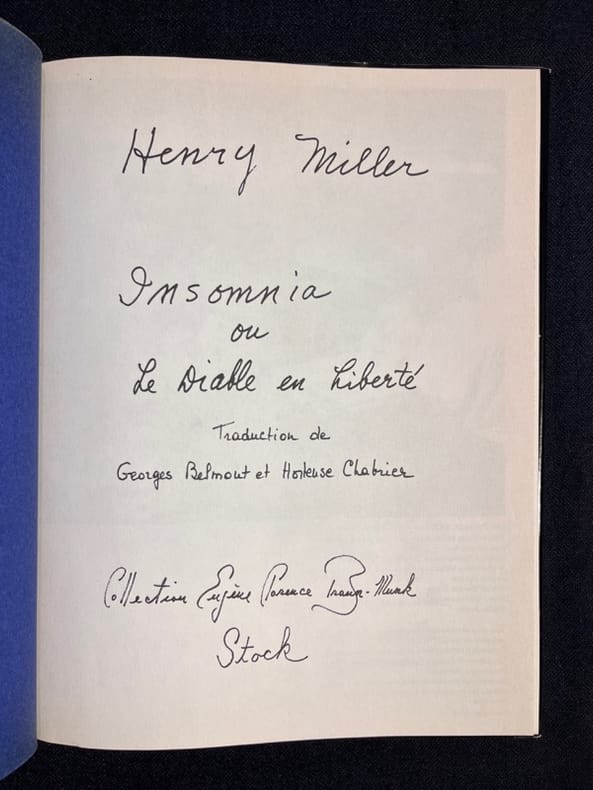 Henry Miller
Insomnia
ou
Le Diable en Liberté
Traduction de
Georges Belmont et Hortense Chabrier
Collection Eugène Clarence Braun-Munk
Stock